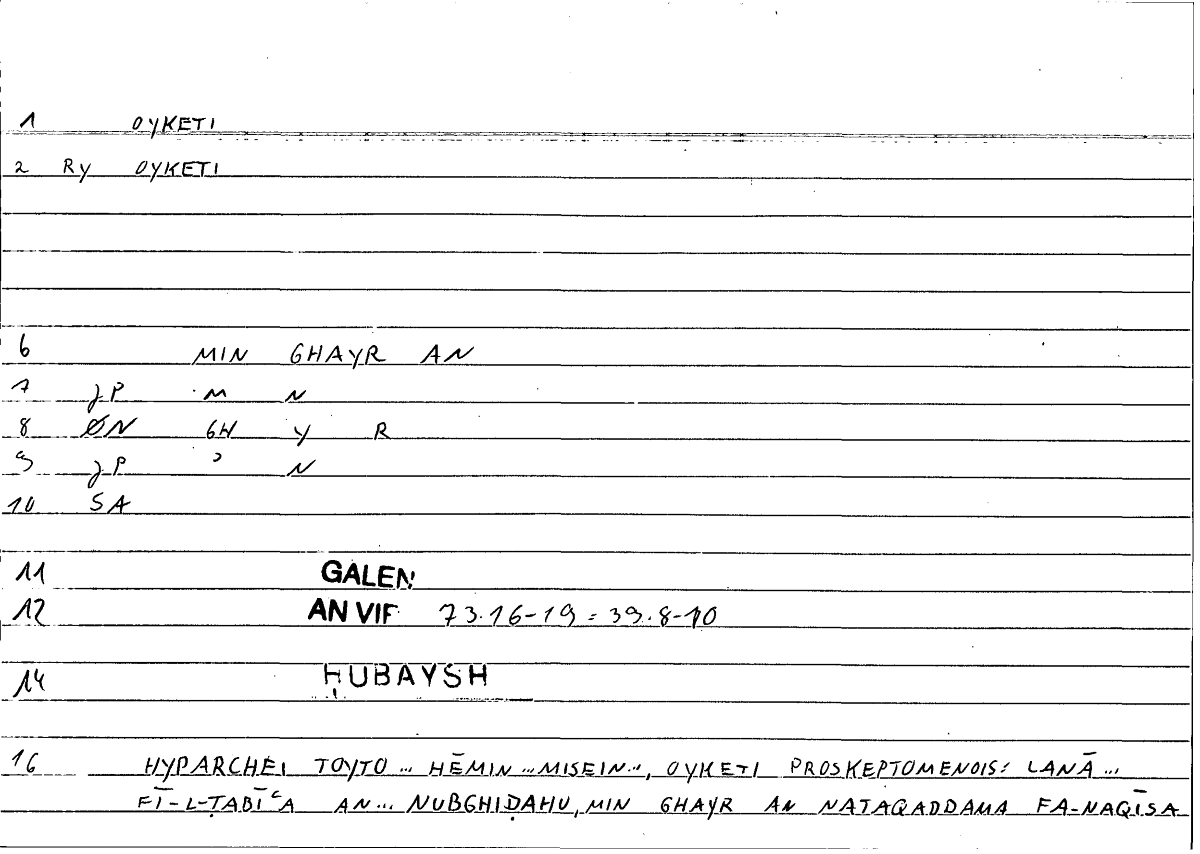 1 OYKETI
2 Ry OYKETI
6 MIN GHAYR AN
7 JP M N
8 ØN GH Y R
9 JP ʾ N
10 SA
11 GALEN
12 AN VIF 73.16-19 = 39.8-10
14 ḤUBAYSH
16 HYPARCHEI TOYTO … HĒMIN … MISEIN …, OYKETI PROSKEPTOMENOIS: LANĀ …
FĪ-L-ṬABĪʿA AN … NUBGHIḌAHU, MIN GHAYR AN NATAQADDAMA FA-NAQĪSA